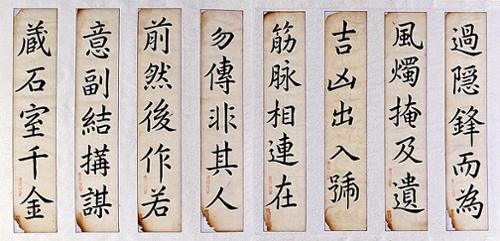 過隱鋒而為
風燭掩及遺
吉凶出入號
筋脉相連在
勿傳非其人
前然後作若
意副結搆謀
蔵石室千金